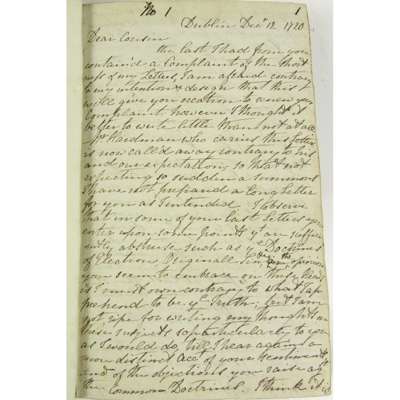 No 1 1
Dublin Decr 12 1720
Dear Cousin
the last I had from you
contain'd a Complaint of the Short
ness of my Letters, I am afraid contrary
to my intention & design that this
will give you occation to renew your
Complaint, however I thought it
better to write little than not at all
Mr Hardman who carries this Letter
is now called away contrary to his
and our expectation, so that not
expecting so sudden a summons
I have not prepared a Long Letter
for you as I intended. I observe
that in some of your last Letters you
enter upon some points yt are suffi
ciently abstruse such as ye Doctrines
of Election Originall Sin, &c the opinion
you seem to embrace on this head
is I must own contrary to what I ap
prehend to be ye Truth; but I am
not ripe for writing my thoughts on
these subjects so particularly to you
as I would do, till I hear again a
more distinct acct of your Sentiments
and of the objections you raise agt
the common Doctrines. I think it is